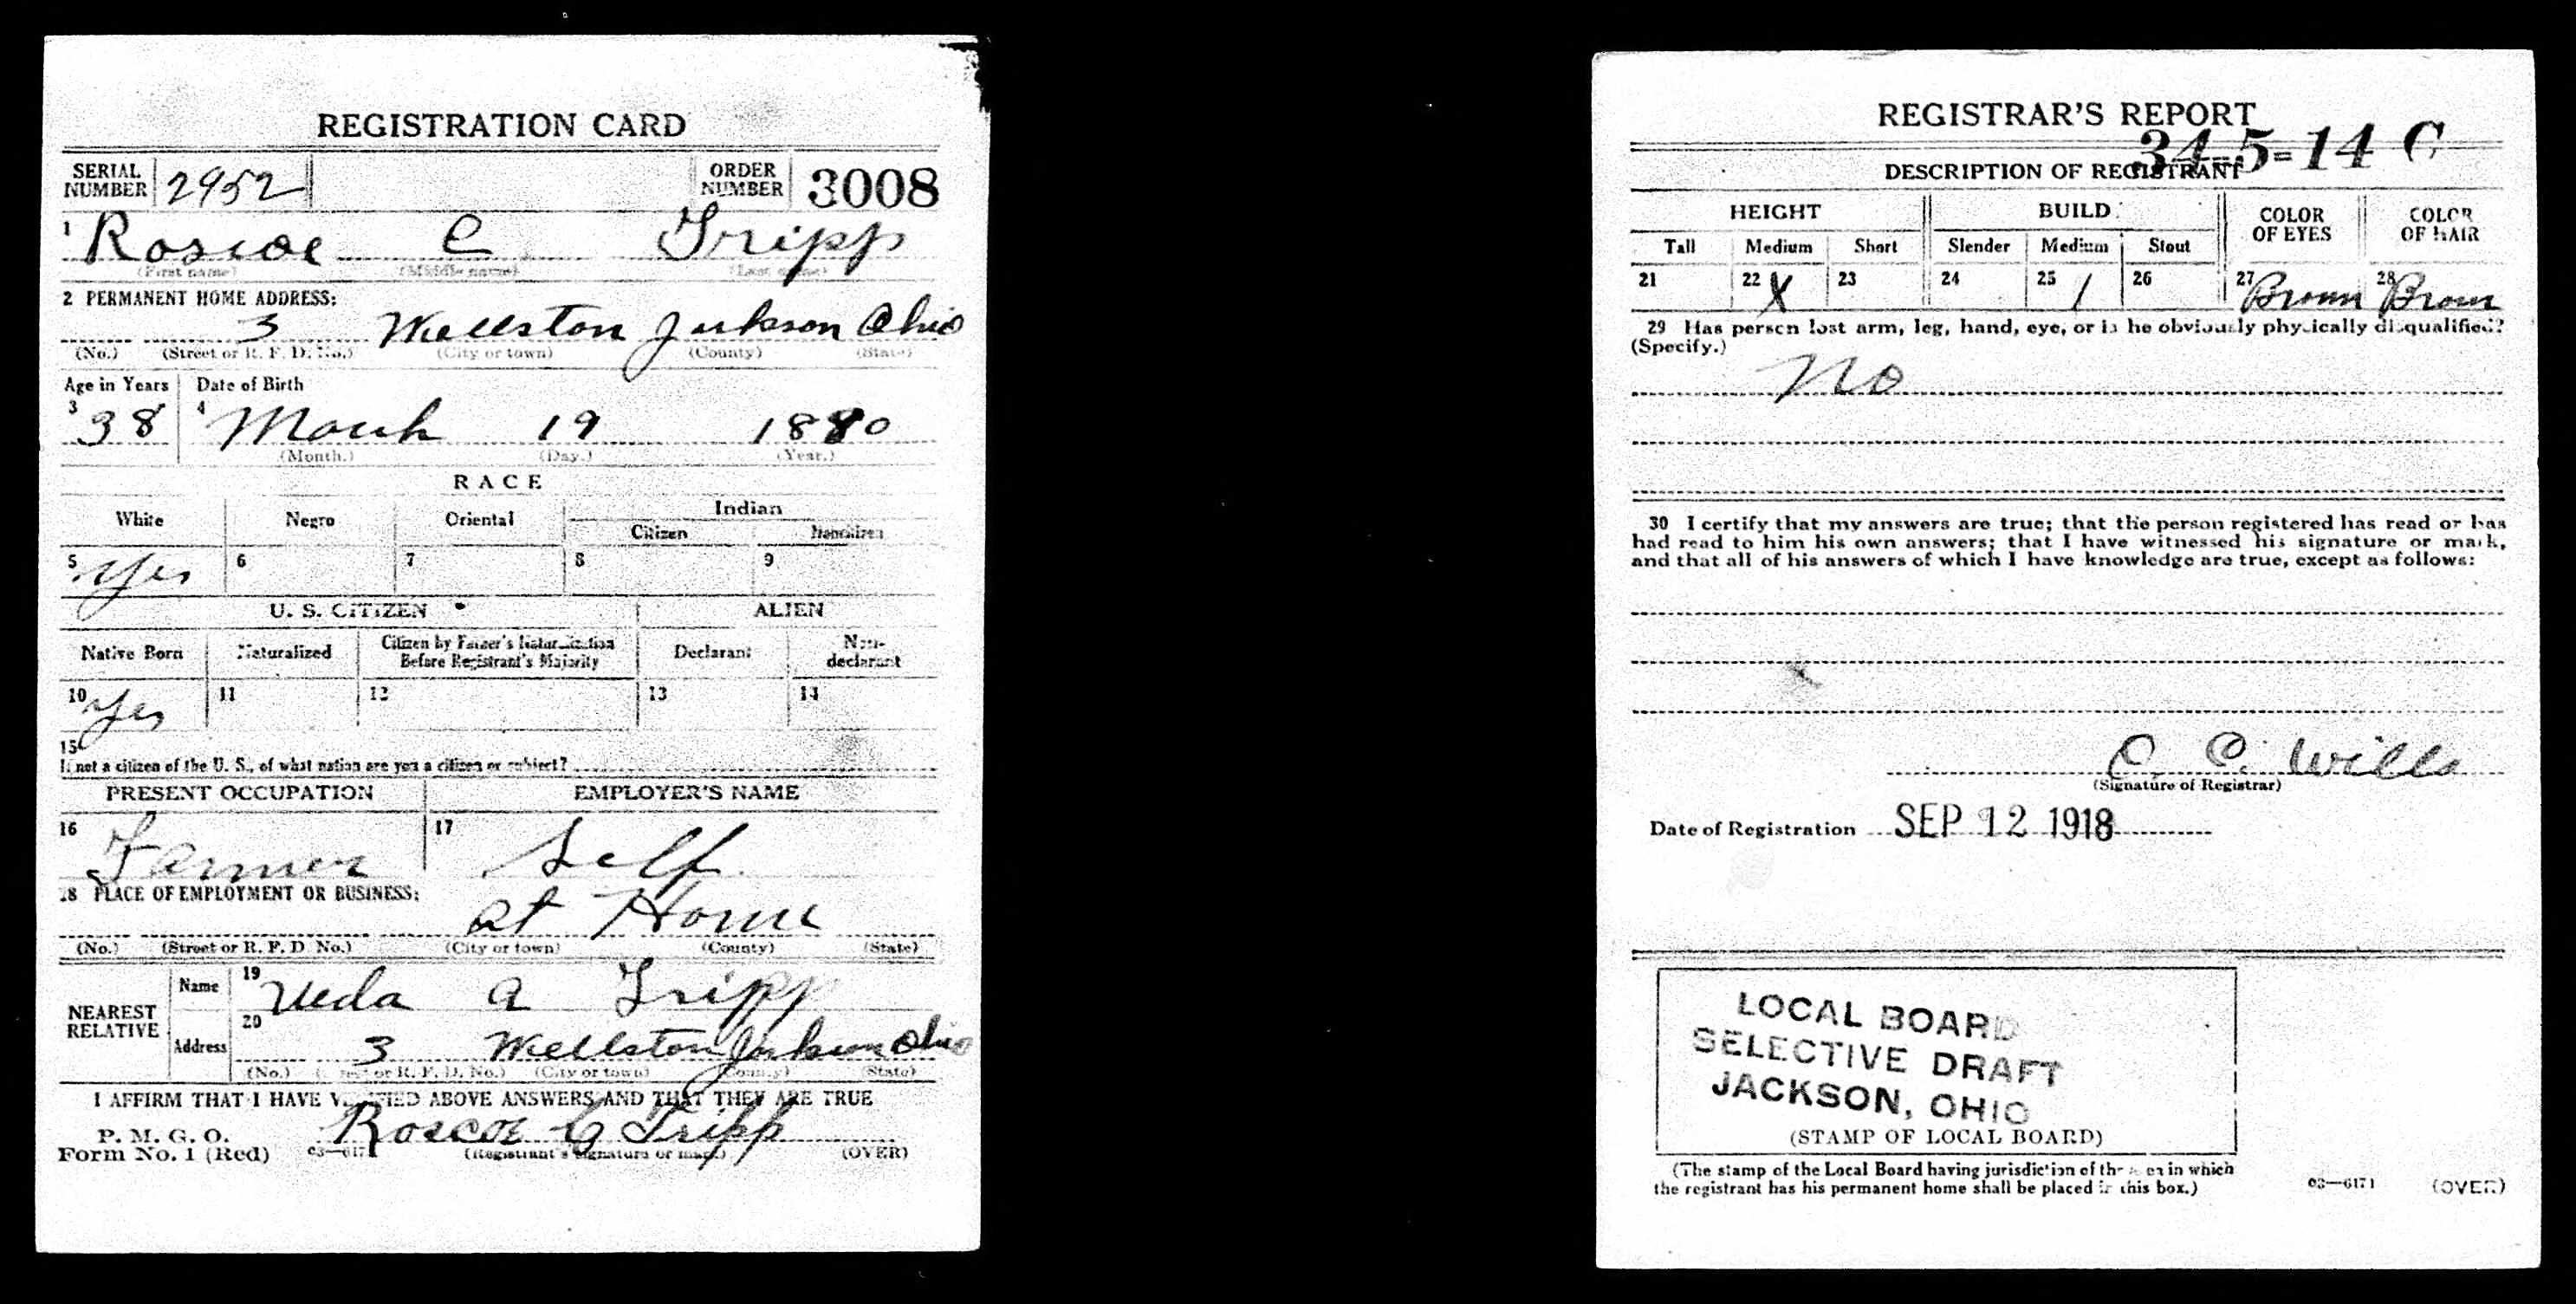 REGISTRATION CARD
SERIAL NUMBER 2952 ORDER NUMBER 3008
1 Roscoe C Tripp
(First name) (Middle name) (Last name)
2 PERMANENT HOME ADDRESS:
3 Wellston Jackson Ohio
(No.) (Street or R. F. D. No.) (City or town) (County) (State)
Age in Years Date of Birth
3 38 4 March 19 1880
(Month.) (Day.) (Year.)
RACE
White Negro Oriental Indian
Citizen Noncitizen
5 Yes 6 7 8 9
U. S. CITIZEN ALIEN
Native Born Naturalized Citizen by Father's Naturalization Before Registrant's Majority Declarant Non-declarant
10 Yes 11 12 13 14
15
If not a citizen of the U. S., of what nation are you a citizen or subject?
PRESENT OCCUPATION EMPLOYER'S NAME
16 Farmer 17 Self
18 PLACE OF EMPLOYMENT OR BUSINESS:
at Home
(No.) (Street or R. F. D. No.) (City or town) (County) (State)
NEAREST RELATIVE Name 19 A Tripp
Address 20 3 Wellston Jackson Ohio
(No.) (Street or R. F. D. No.) (City or town) (County) (State)
I AFFIRM THAT I HAVE VERIFIED ABOVE ANSWERS AND THAT THEY ARE TRUE
P. M. G. O.
Form No. 1 (Red) 03—6171 Roscoe C Tripp
(Registrant's signature or mark) (OVER)
REGISTRAR'S REPORT
34-5-14 C
DESCRIPTION OF REGISTRANT
HEIGHT BUILD COLOR OF EYES COLOR OF HAIR
Tall Medium Short Slender Medium Stout
21 22 X 23 24 25 / 26 27 Brown 28 Brown
29 Has person lost arm, leg, hand, eye, or is he obviously physically disqualified?
(Specify.)
No
30 I certify that my answers are true; that the person registered has read or has
had read to him his own answers; that I have witnessed his signature or mark,
and that all of his answers of which I have knowledge are true, except as follows:
C. C. Wills
(Signature of Registrar)
Date of Registration SEP 12 1918
LOCAL BOARD
SELECTIVE DRAFT
JACKSON, OHIO
(STAMP OF LOCAL BOARD)
(The stamp of the Local Board having jurisdiction of the area in which
the registrant has his permanent home shall be placed in this box.)
03—6171 (OVER)